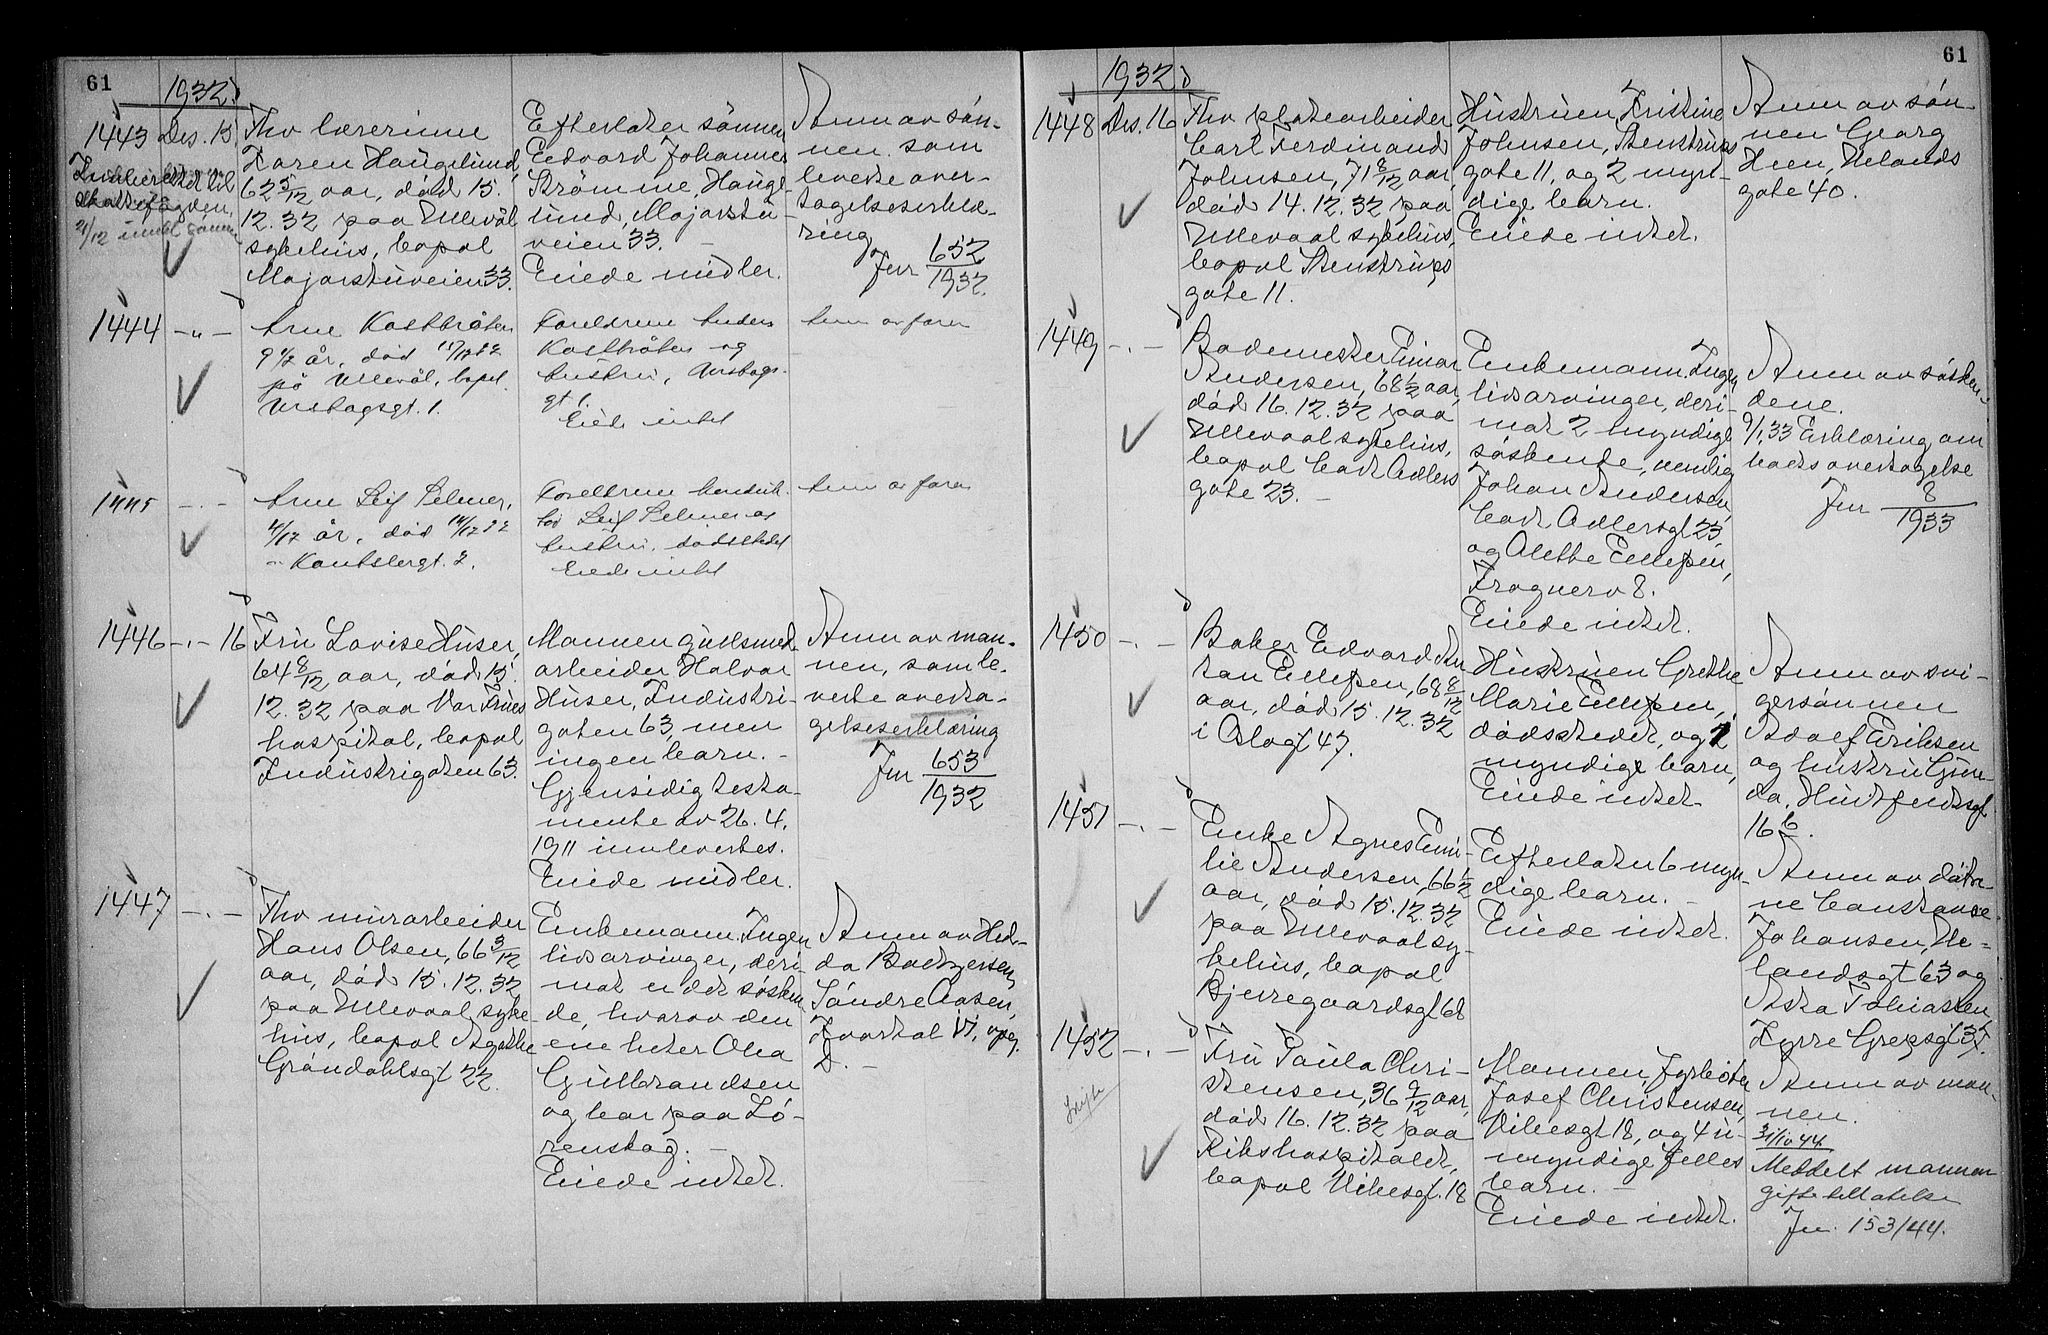 61
1932.
1443 Des. 15.
Fhv lærerinne
Karen Haugelund,
62 5/12 aar, död 15.
12.32 paa Ullevål
sykehus, bopel
Majorstuveien 33.
Efterlater sönnen
Edvard Johannes
Strömme Hauge-
lund, Majorstu-
veien 33. -
Eiede midler.
Anm av sön-
nen som
leverte over-
tagelseserklæ-
ring
Jnr 652/1932.
1444 -"-
Arne
9 1/2 år, död 15/12 32
på Ullevål, bopel.
Foreldrene Anders
og
hustru,
gt 1.
Eide intet
Anm av faren
1445 -.-
Arne Leif Selmer,
4/12 år, död 14/12 32
Foreldrene
Leif Selmer og
hustru, dödsstedet
Eiede intet
Anm av faren
1446 -.- 16
Frü Lovise Huser,
64 8/12 aar, död 15.
12.32 paa Vor Frues
hospital, bopel
Industrigaten 63.
Mannen gullsmed-
arbeider Halvar
Huser, Industri-
gaten 63, men
ingen barn. -
Gjensidig testa-
mente av 26.4.
1911 innlevertes.
Eiede midler.
Anm av man-
nen, som le-
verte overta-
gelseserklæring
Jnr 653/1932
1447 -.-
Fhv murarbeider
Hans Olsen, 66 3/12
aar, död 15.12.32
paa Ullevaal syke
hus, bopel Agathe
Gröndahlsgt 22.
Enkemann. Ingen
livsarvinger, deri-
mot er der sösken
de, hvorav den
ene heter Olea
Gulbrandsen
og bor paa Lö-
renskog. -
Eiede intet.
Anm av Hed-
da Bodgersen,
Söndre Aasen,
Kvartal VI, opg.
D. -
61
1932
1448 Des. 16
Fhv platearbeider
Carl Ferdinand
Johnsen, 71 8/12 aar,
död 14.12.32 paa
Ullevaal sykehus,
bopel Stenstrups
gate 11.
Hustruen Kristine
Johnsen, Stenstrups
gate 11, og 2 myn-
dige barn.
Eiede intet.
Anm av sön-
nen Georg
Heen, Uelands
gate 40.
1449 -.-
Bademester Einar
Andersen, 68 1/2 aar,
död 16.12.32 paa
Ullevaal sykehus,
bopel Cort Adlers
gate 23. -
Enkemann. Ingen
livsarvinger, deri-
mot 2 myndige
söskende, nemlig
Johan Andersen,
Cort Adlersgt 23,
og Alethe Ellefsen,
Frognerv 8.
Eiede intet.
Anm av sösken-
dene.
9/1 33 Erklæring om
boets overtagelse
Jnr 8/1933
1450 -.-
Baker Edvard An
ton Ellefsen, 68 8/12
aar, död 15.12.32
i Oslogt 47.
Hustruen Grethe
Marie Ellefsen,
dödsstedet, og 7
myndige barn,
Eiede intet.
Anm av svi-
gersönnen
Adolf Eriksen
og hustru Gun-
da, Huitfeldtsgt
16 b.
1451 -.-
Enke Agnes Emi-
lie Andersen, 66 1/2
aar, död 15.12.32
paa Ullevaal sy-
kehus, bopel
Bjerregaardsgt 68
Efterlater 6 myn-
dige barn. -
Eiede intet.
Anm av dötre-
ne Constanse
Johansen, Ue-
landsgt 63 og
Asta Tobiassen,
Kyrre Grepsgt
1452 -.-
Frü Paula Chri-
stensen, 36 9/12 aar,
död 16.12.32 paa
Rikshospitalet,
bopel Vibesgt. 18
Mannen, fyrböter
Josef Christensen,
Vibesgt 18, og 4 u-
myndige felles
barn. -
Eiede intet.
Anm av man-
nen.
Meddelt mannen
giftetillatelse
Jnr. 153/44.